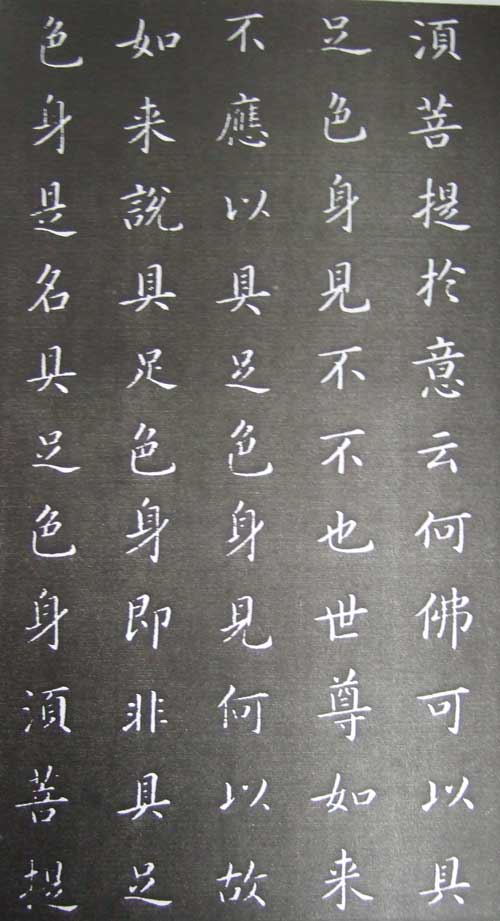 須菩提於意云何佛可以具
足色身見不不也世尊如来
不應以具足色身見何以故
如来說具足色身即非具足
色身是名具足色身須菩提